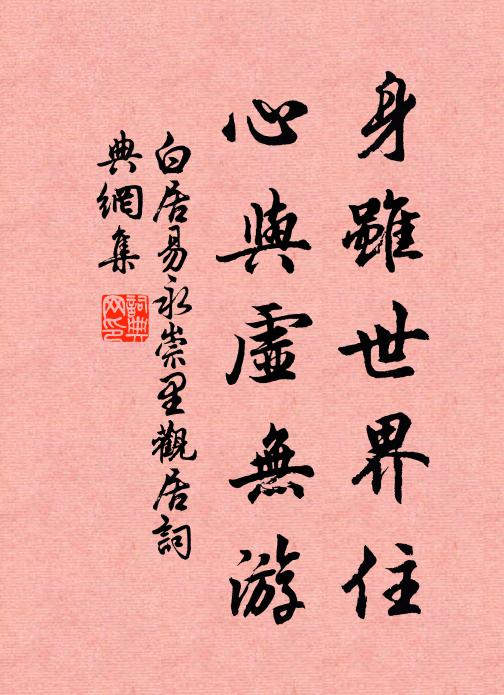 身雖世界住
心與虛無游
白居易永崇里觀居詞
典網集
詞典
网印